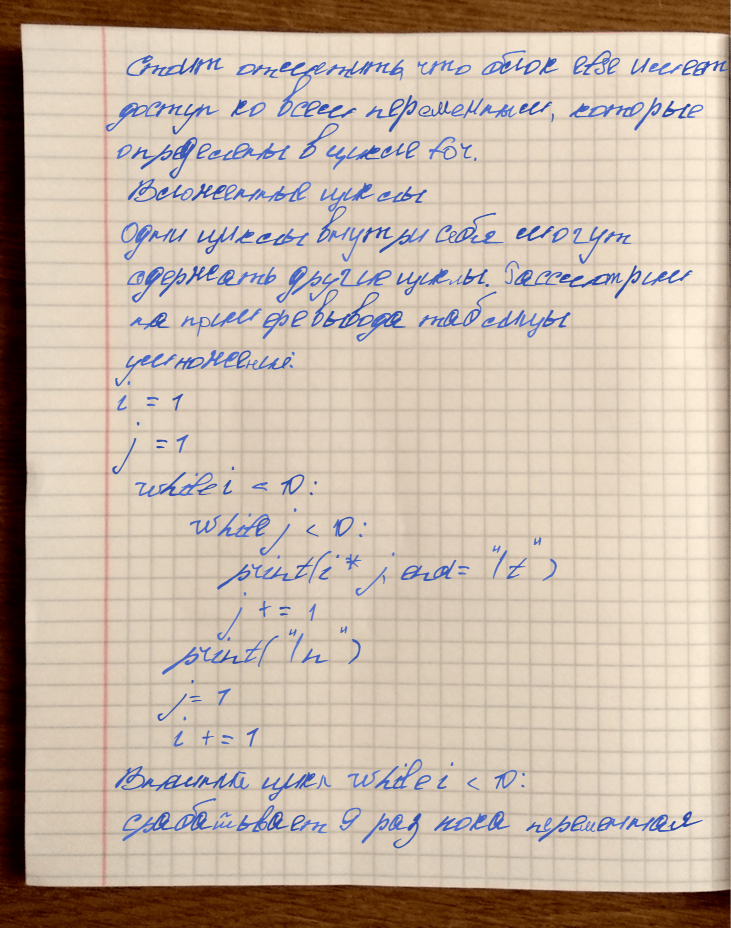 Стоит отметить, что блок else имеет
доступ ко всем переменным, которые
определены в цикле for.
Вложенные циклы
Одни циклы внутри себя могут
содержать другие циклы. Рассмотрим
на примере вывода таблицы
умножения:
i = 1
j = 1
while i < 10:
while j < 10:
print(i * j, end= "\t")
j += 1
print("\n")
j = 1
i += 1
Внешний цикл while i < 10:
срабатывает 9 раз пока переменная